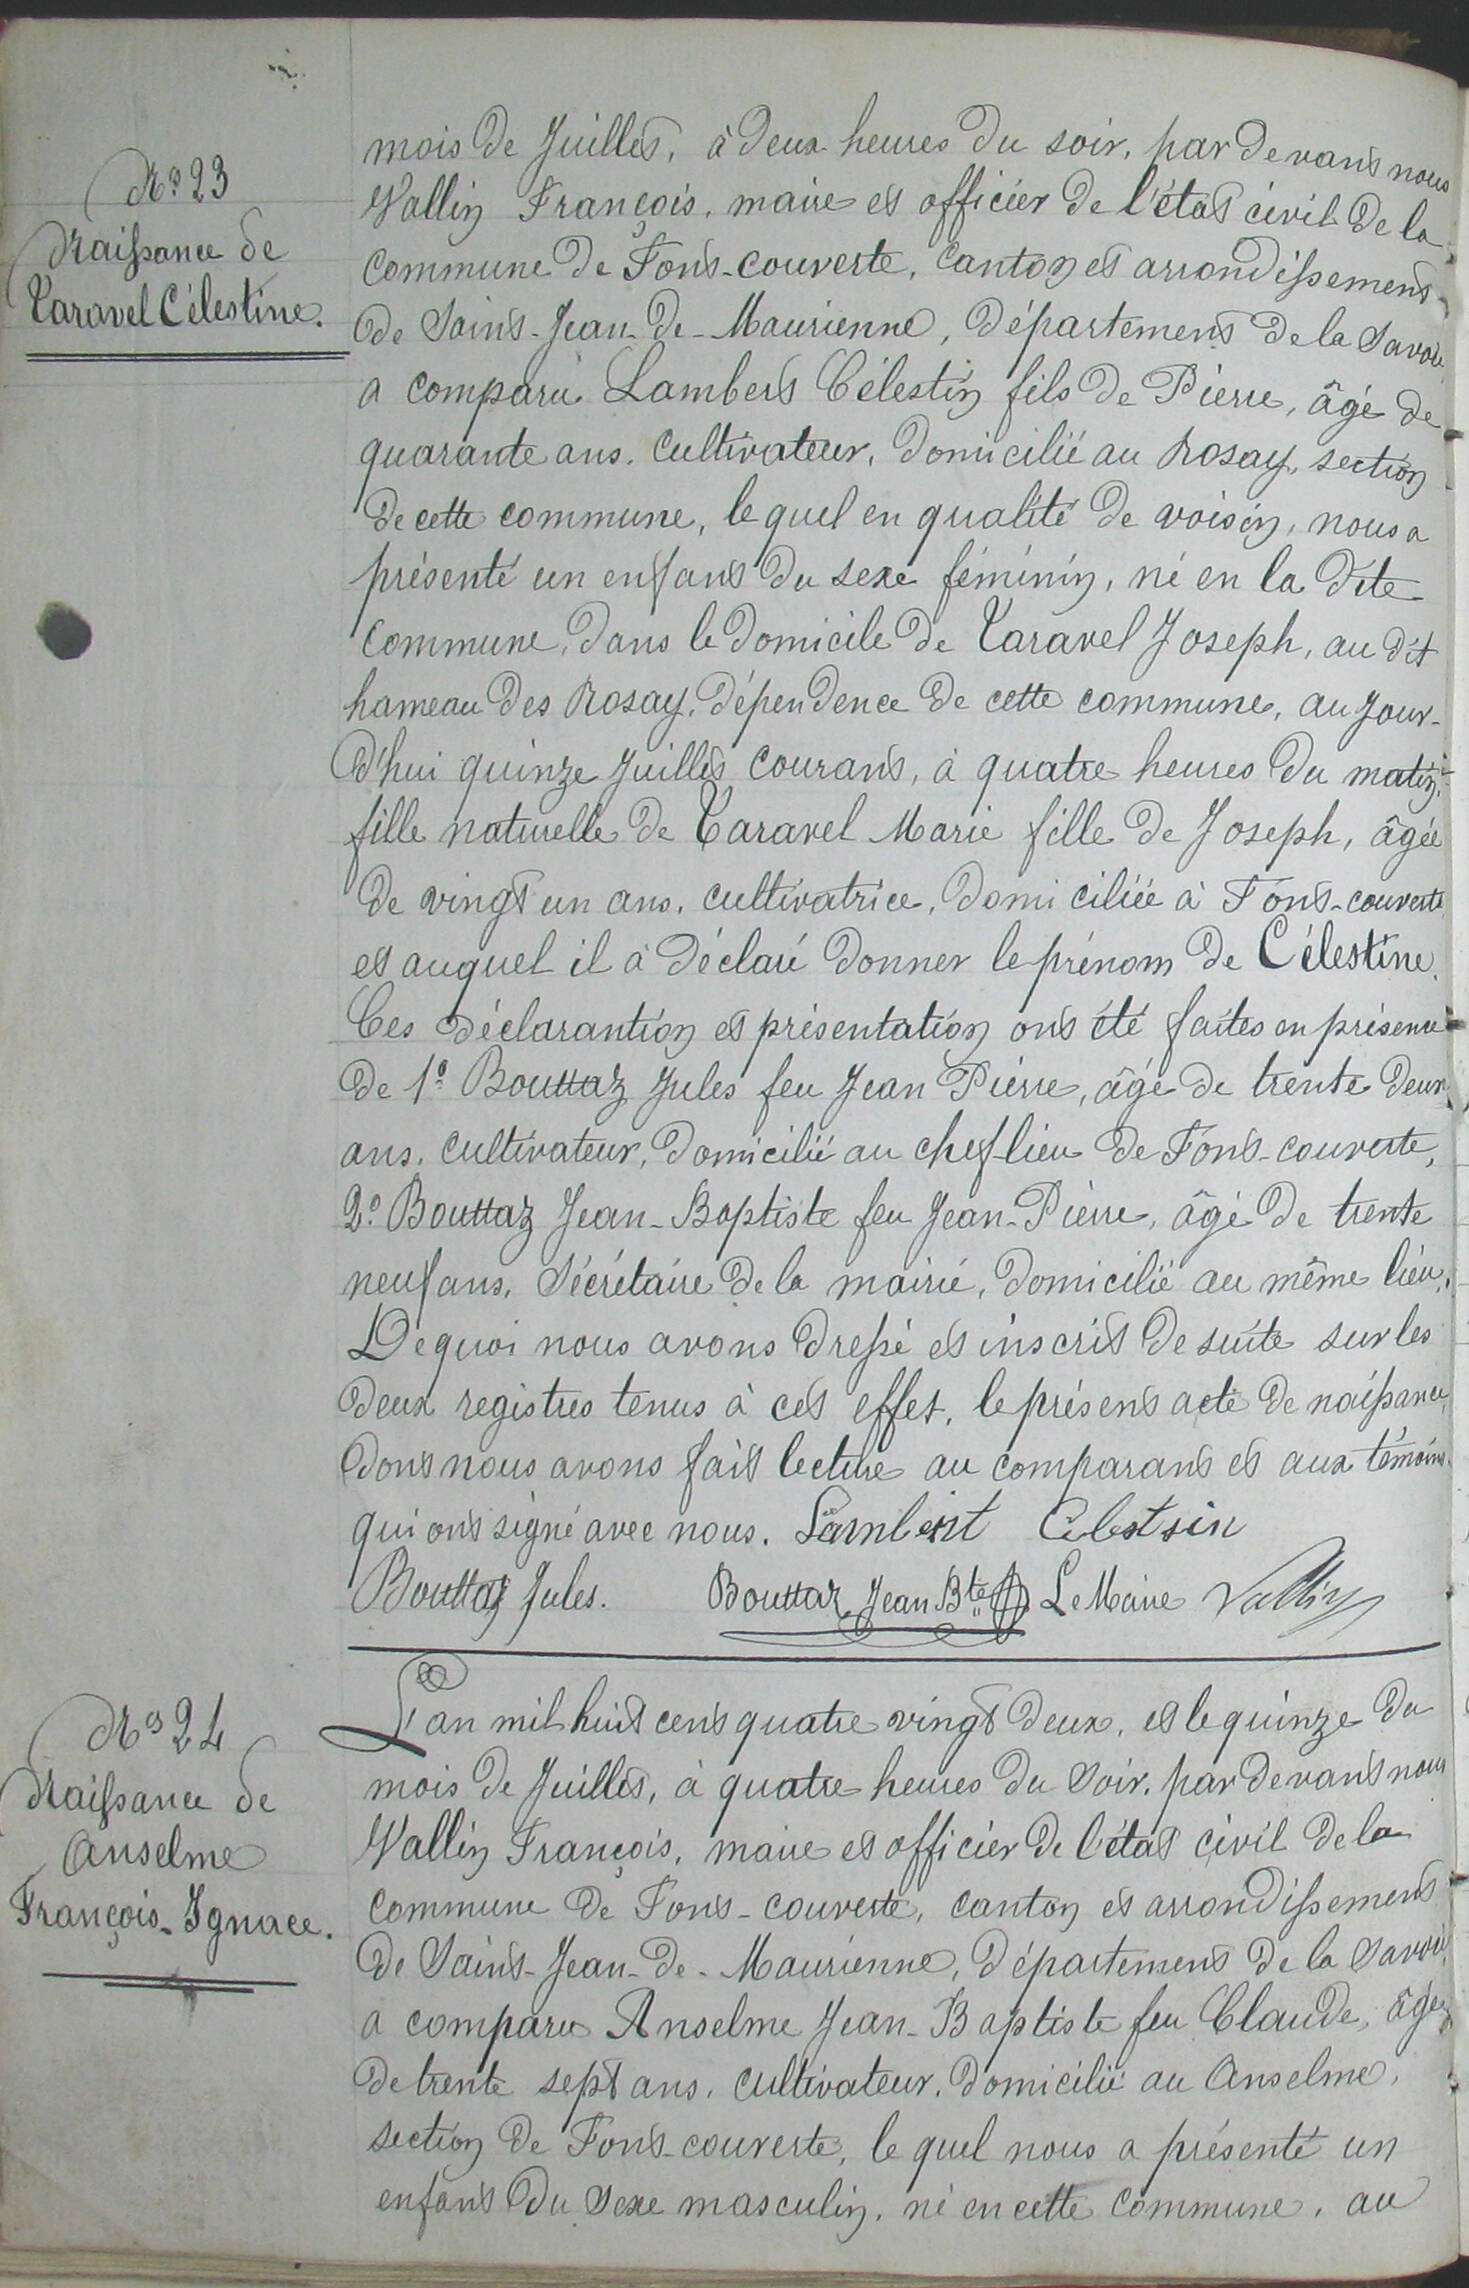 N.° 23
Naissance de
Taravel Célestine.
mois de Juillet, à deux heures du soir, par devant nous
Vallin François, maire et officier de l'état civil de la
commune de Font-couverte, canton et arrondissement
de Saint-Jean-de-Maurienne, département de la Savoie
a comparu Lambert Célestin fils de Pierre, âgé de
quarante ans, cultivateur, domicilié au Rosay, section
de cette commune, le quel en qualité de voisin, nous a
présenté un enfant du sexe féminin, né en la dite
commune, dans le domicile de Taravel Joseph, au dit
hameau des Rosay, dépendence de cette commune, au jour-
d'hui quinze juillet courant, à quatre heures du matin,
fille naturelle de Taravel Marie fille de Joseph, âgée
de vingt un ans, cultivatrice, domiciliée à Font-couverte
et auquel il à déclaré donner le prénom de Célestine.
Ces déclarantion et présentation ont été faites en présence
de 1° Bouttaz Jules feu Jean Pierre, âgé de trente deux
ans, cultivateur, domicilié au chef-lieu de Font-couverte,
2° Bouttaz Jean-Baptiste feu Jean-Pierre, âgé de trente
neuf ans, sécrétaire de la mairie, domicilié au même lieu.
De quoi nous avons dressé et inscrit de suite sur les
deux registres tenus à cet effet, le présent acte de naissance
dont nous avons fait lecture au comparant et aux témoins
qui ont signé avec nous. Lambert Celestsin
Bouttaz Jules. Bouttaz Jean Bte Le Maire Vallin
N° 24
Naissance de
Anselme
François-Ignace.
L'an mil huit cent quatre vingt deux, et le quinze du
mois de Juillet, à quatre heures du soir, par devant nous
Vallin François, maire et officier de l'état civil de la
commune de Font-couverte, canton et arrondissement
de Saint-Jean-de-Maurienne, département de la Savoie
a comparu Anselme Jean-Baptiste feu Claude, âgé
de trente sept ans, cultivateur, domicilié au Anselme,
section de Font-couverte, le quel nous a présenté un
enfant du sexe masculin, né en cette commune, au